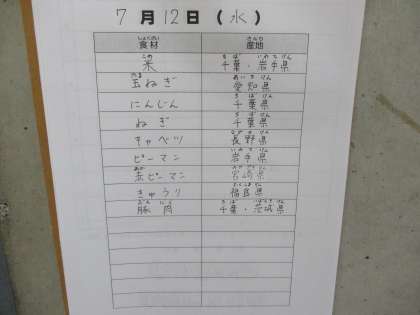 7月12日(水)
食材 産地
米 千葉・岩手県
玉ねぎ 愛知県
にんじん 千葉県
ねぎ 千葉県
キャベツ 長野県
ピーマン 岩手県
ピーマン 宮崎県
きゅうり 福島県
豚肉 千葉・茨城県